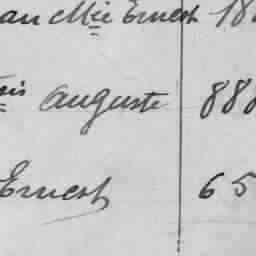 an Mie Ernest 18
ois Auguste 888
Ernest 65